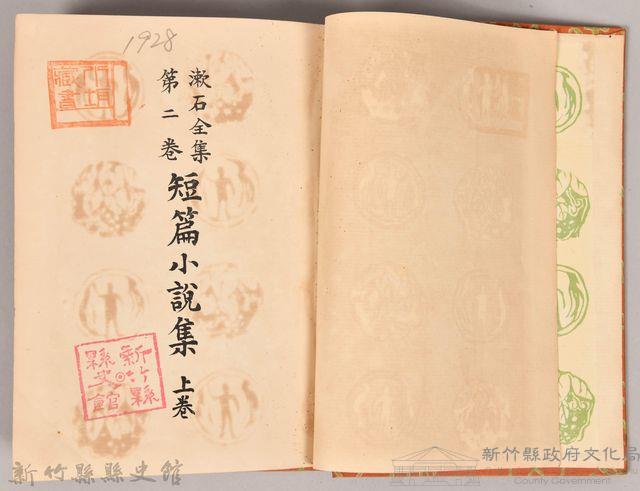 1928
漱石全集
第二卷
短篇小說集 上卷
藏書
新竹縣
縣史館
新竹縣縣史館
新竹縣政府文化局
County Government